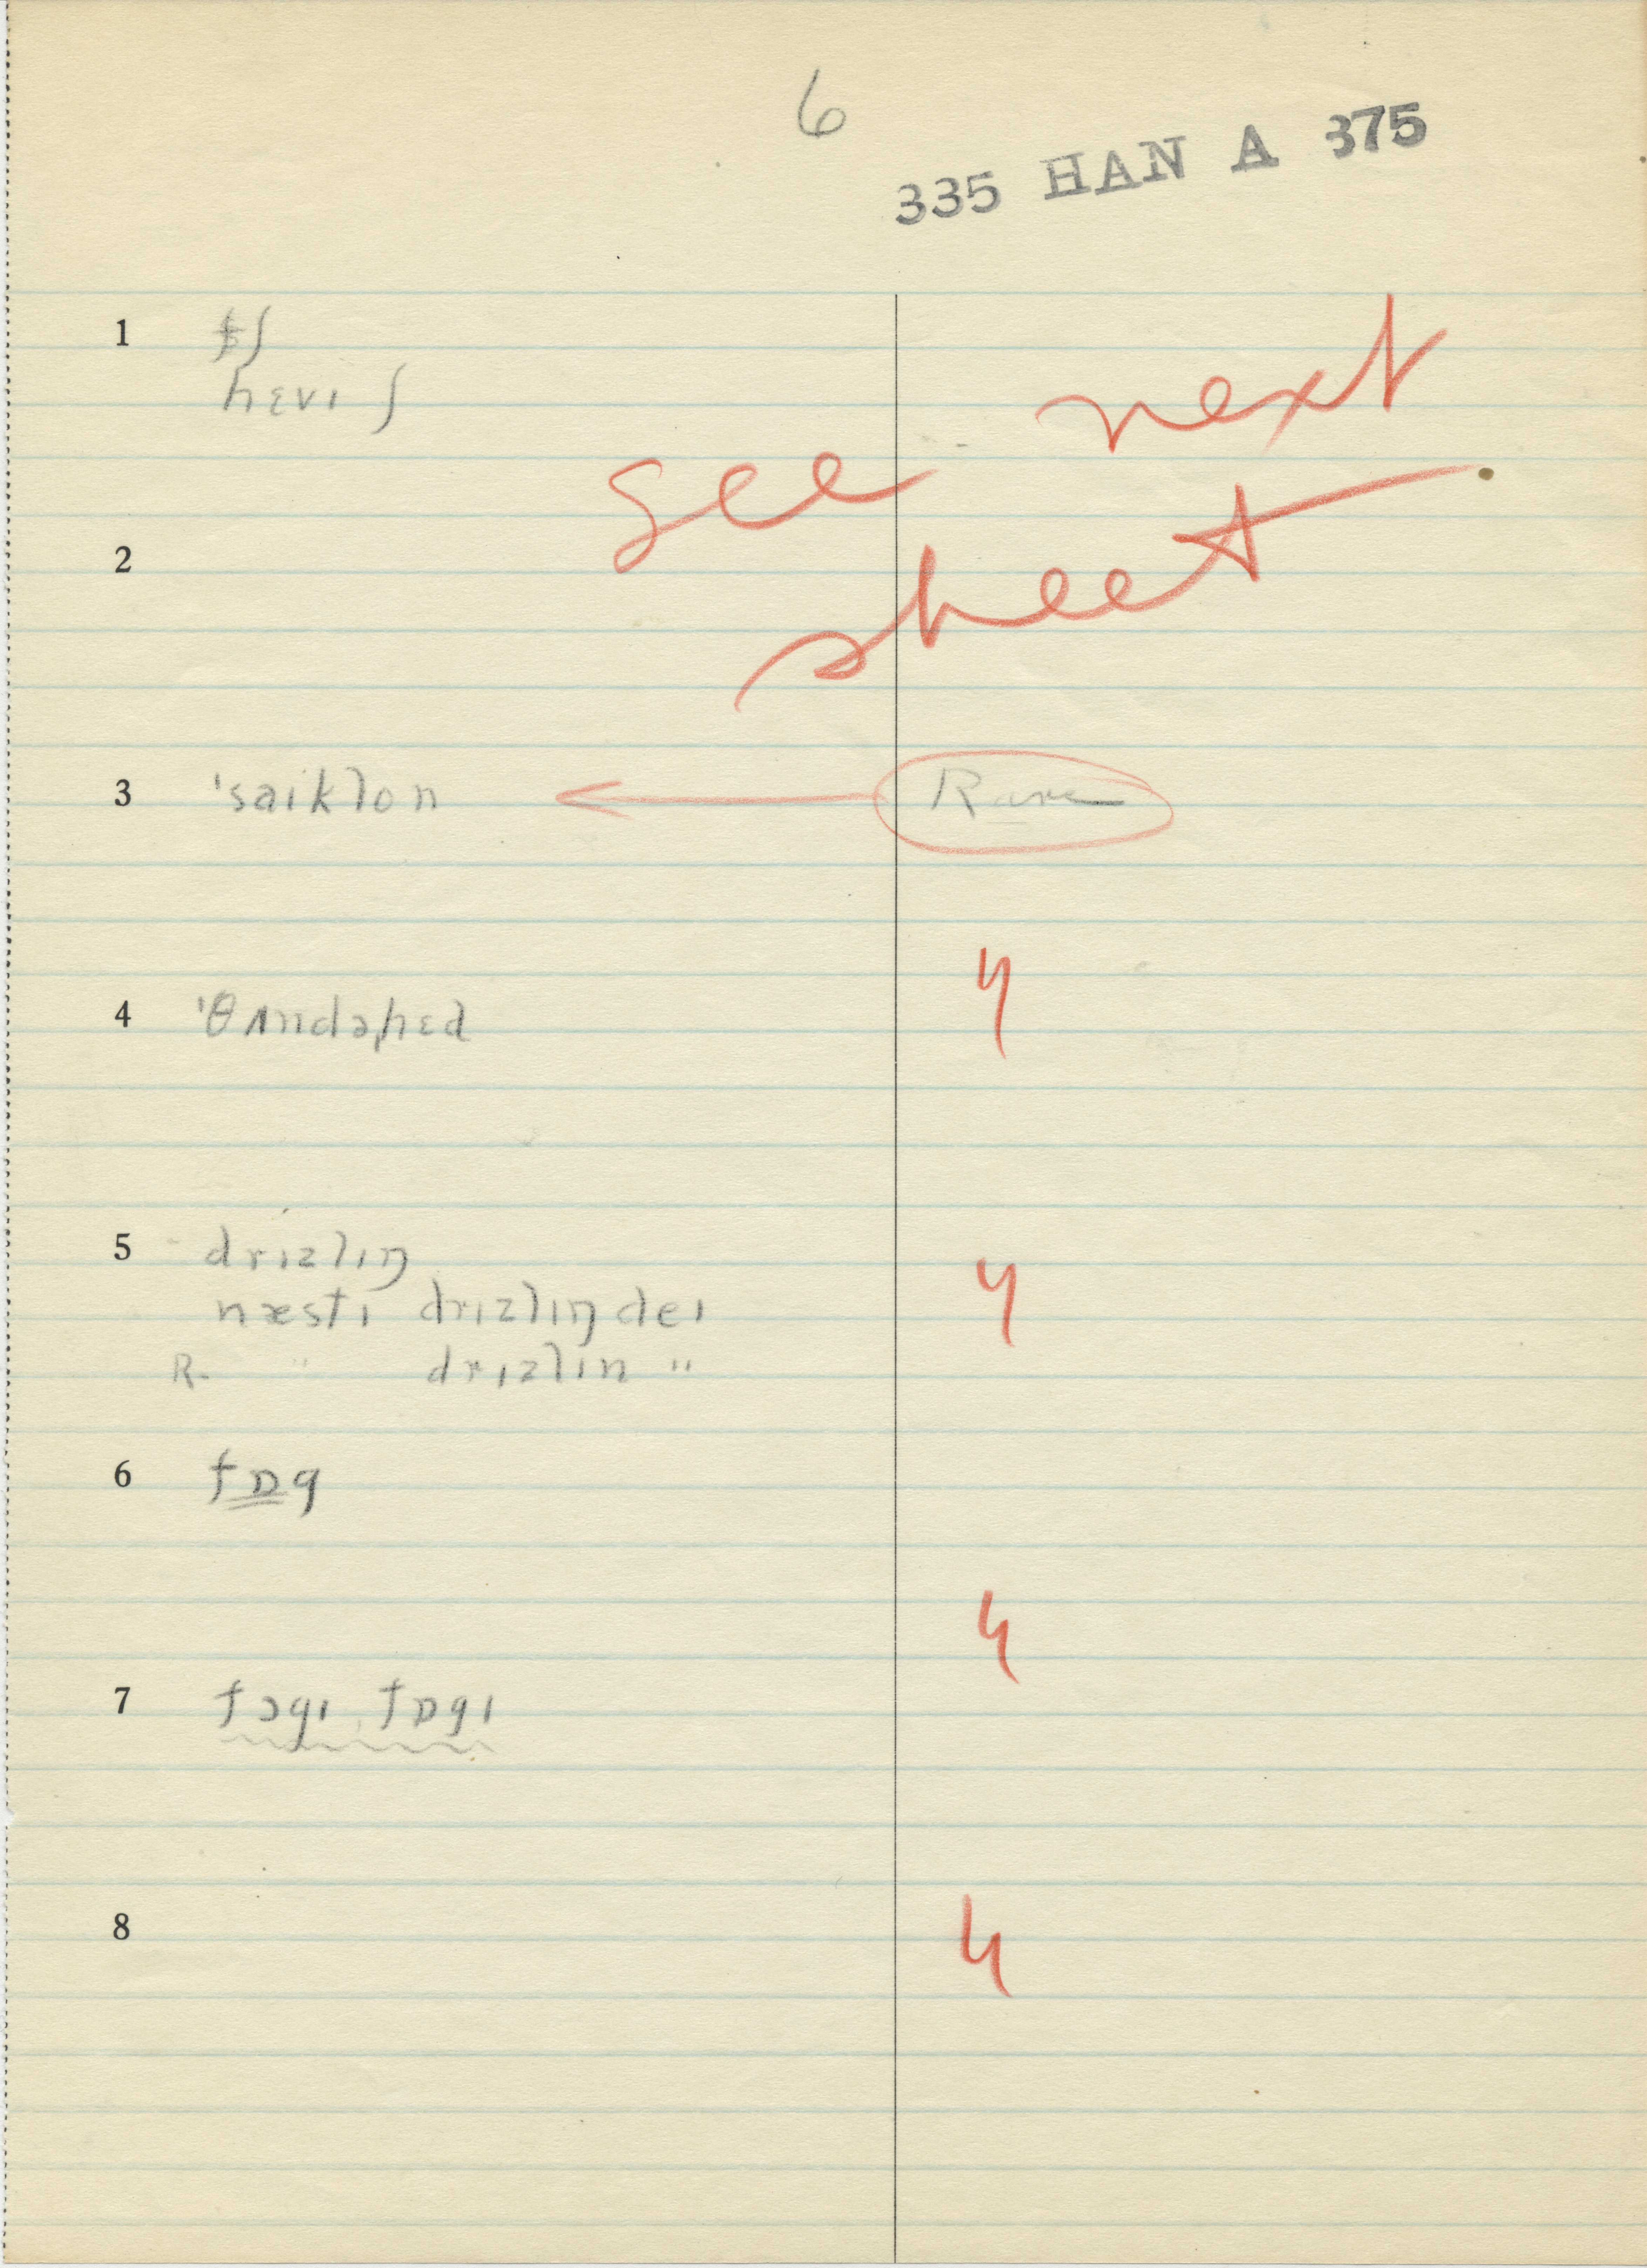 6
335 HAN A 375
1 $ʃ
hɛvɪ ʃ
see next
sheet
2
3 ˈsaiklon ← Rare
4 ˈθʌndəˌhɛd
4
5 drɪzlɪŋ
4
næsti drɪzlɪŋ deɪ
R. " drɪzlɪn "
6 fɒg
4
7 fɔgɪ, fɒgɪ
8
4